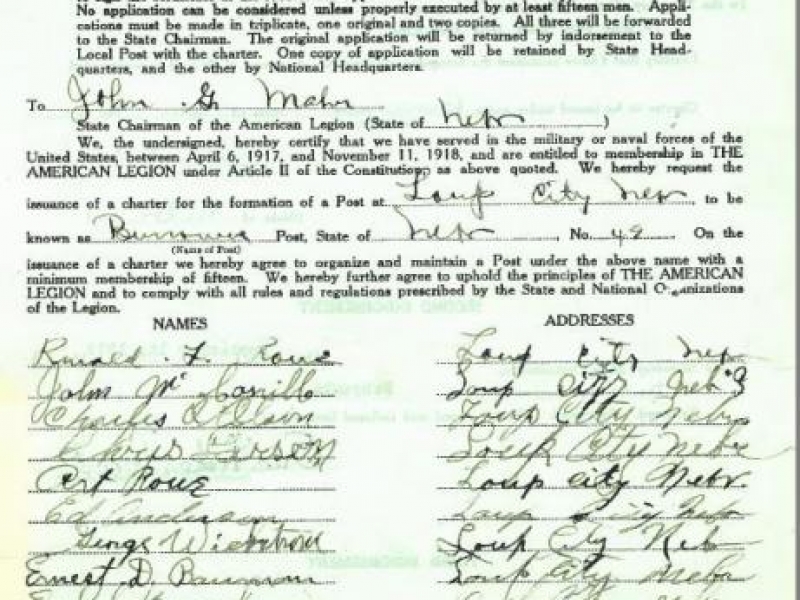 No application can be considered unless properly executed by at least fifteen men. Appli-
cations must be made in triplicate, one original and two copies. All three will be forwarded
to the State Chairman. The original application will be returned by indorsement to the
Local Post with the charter. One copy of application will be retained by State Head-
quarters, and the other by National Headquarters.
To John G Maher
State Chairman of the American Legion (State of Nebr )
We, the undersigned, hereby certify that we have served in the military or naval forces of the
United States, between April 6, 1917, and November 11, 1918, and are entitled to membership in THE
AMERICAN LEGION under Article II of the Constitution as above quoted. We hereby request the
issuance of a charter for the formation of a Post at Loup City Nebr, to be
known as Post, State of Nebr, No. 48 On the
(Name of Post)
issuance of a charter we hereby agree to organize and maintain a Post under the above name with a
minimum membership of fifteen. We hereby further agree to uphold the principles of THE AMERICAN
LEGION and to comply with all rules and regulations prescribed by the State and National Organizations
of the Legion.
NAMES ADDRESSES
F. Rowe Loup City Nebr
John Mc Loup City Nebr
Charles Loup City Nebr
Chris Larsen Loup City Nebr
Art Rowe Loup City Nebr.
Ed Anderson Loup City Nebr
George Loup City Neb
Ernest D. Bauman Loup City Nebr